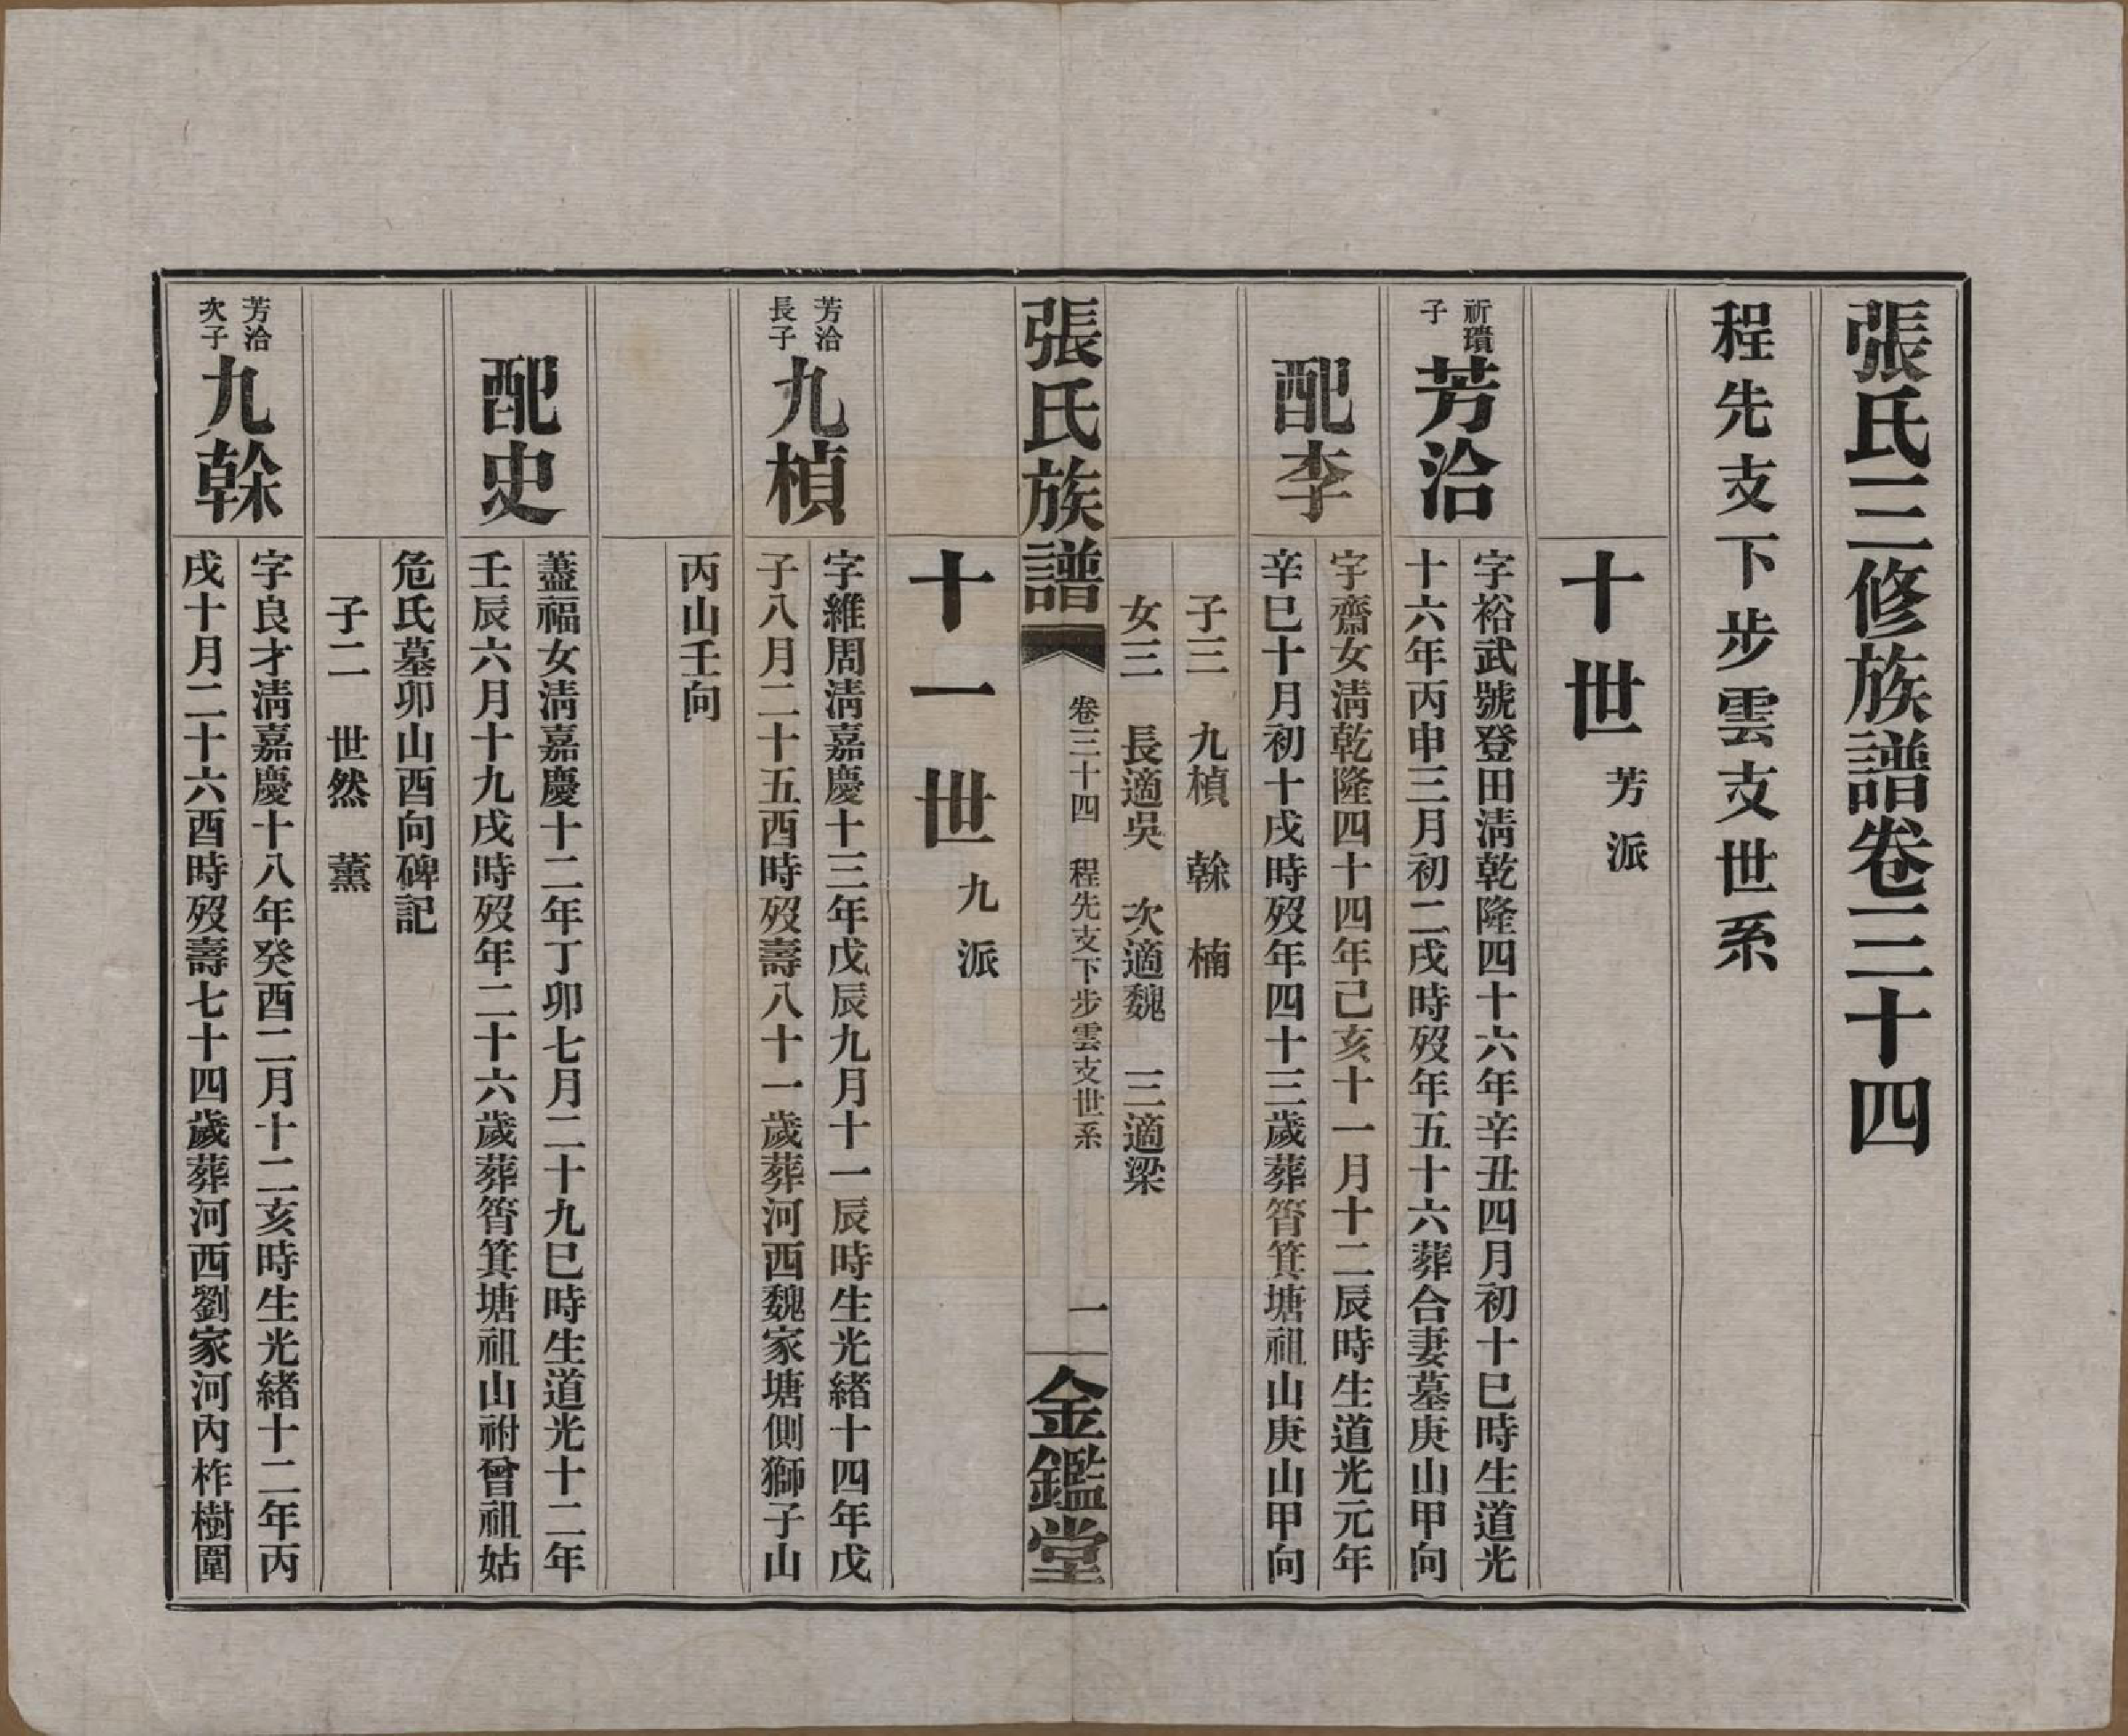 張氏三修族譜卷三十四
程先支下步雲支世系
十世 芳派
祈璝子
芳洽
字裕武號登田淸乾隆四十六年辛丑四月初十巳時生道光
十六年丙申三月初二戌時歿年五十六葬合妻墓庚山甲向
配李
字齋女淸乾隆四十四年己亥十一月十二辰時生道光元年
辛巳十月初十戌時歿年四十三歲葬筲箕塘祖山庚山甲向
子三 九楨 榦 楠
女三 長適吳 次適魏 三適梁
張氏族譜 卷三十四 程先支下步雲支世系 一 金鑑堂
十一世 九派
芳洽長子
九楨
字維周淸嘉慶十三年戊辰九月十一辰時生光緒十四年戊
子八月二十五酉時歿壽八十一歲葬河西魏家塘側獅子山
丙山壬向
配史
藎福女淸嘉慶十二年丁卯七月二十九巳時生道光十二年
壬辰六月十九戌時歿年二十六歲葬筲箕塘祖山祔曾祖姑
危氏墓卯山酉向碑記
子二 世然 薰
芳洽次子
九榦
字良才淸嘉慶十八年癸酉二月十二亥時生光緒十二年丙
戌十月二十六酉時歿壽七十四歲葬河西劉家河內柞樹圍